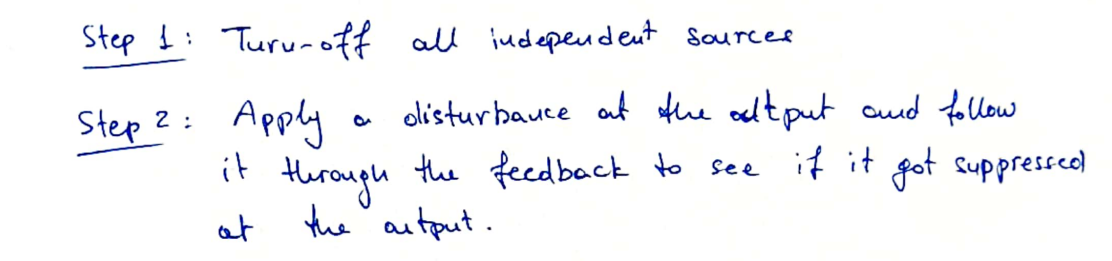 Step 1: Turn-off all independent sources
Step 2: Apply a disturbance at the output and follow
it through the feedback to see if it got suppressed
at the output.